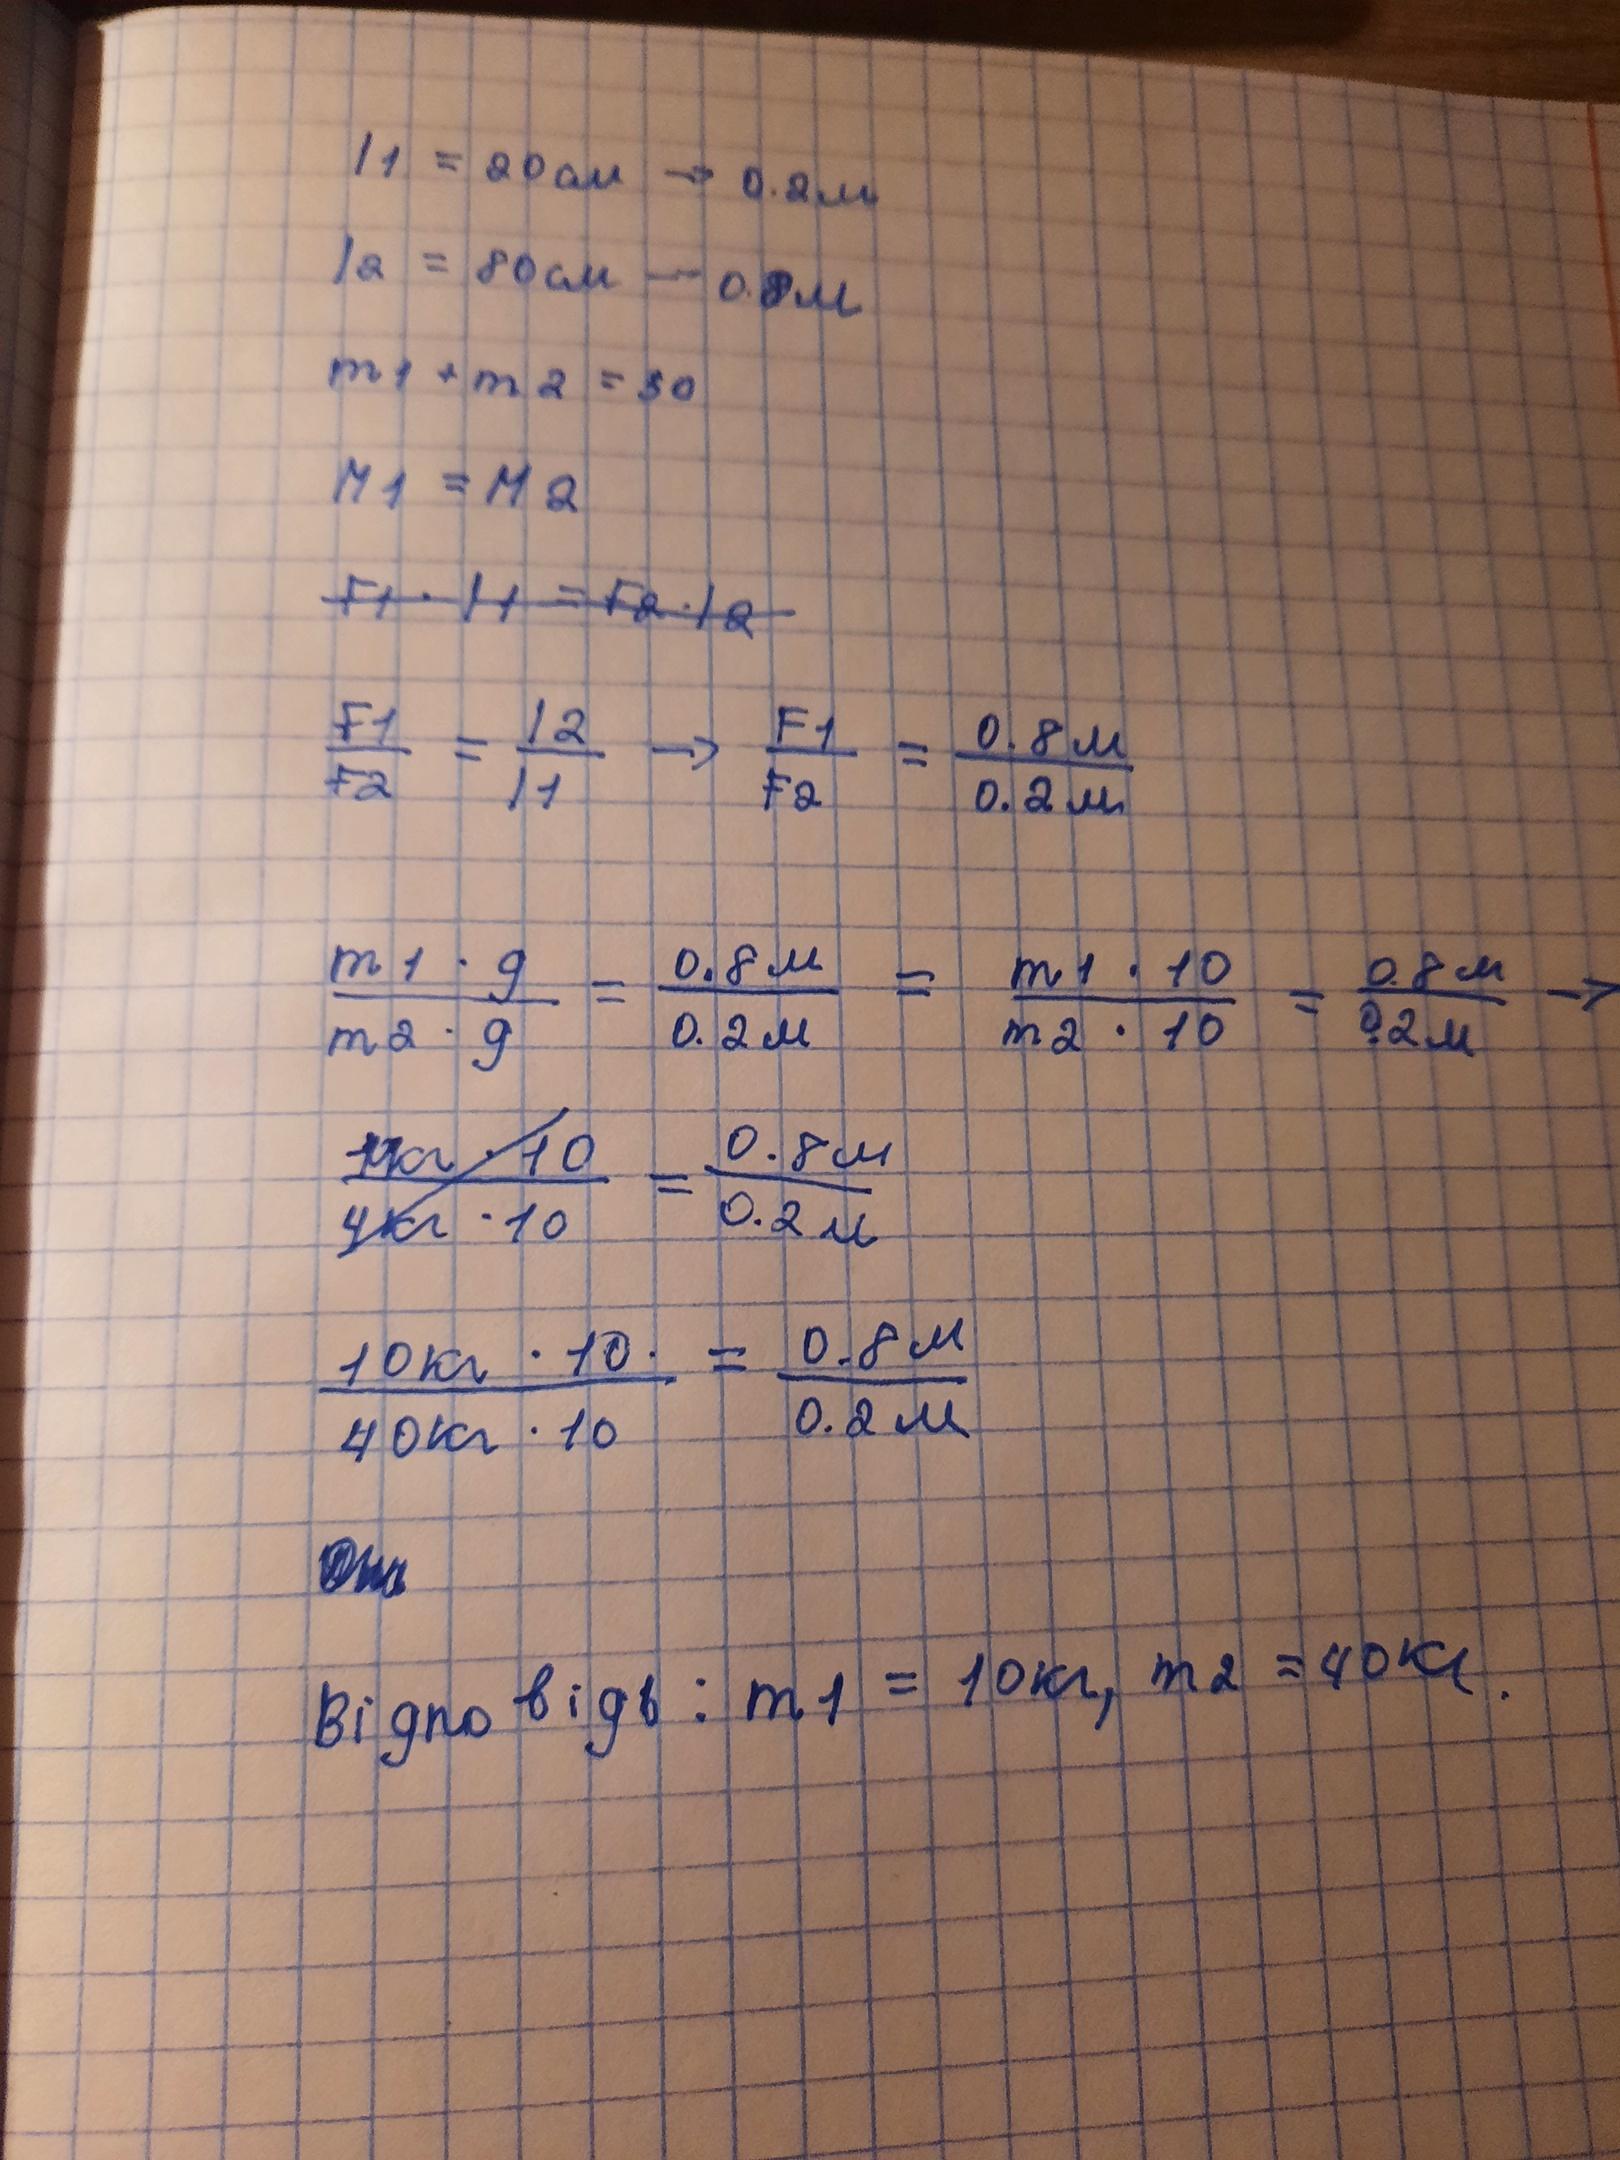 l1 = 20см → 0.2м
l2 = 80см — 0.8м
m1 + m2 = 50
M1 = M2
F1 · l1 = F2 · l2
F1/F2 = l2/l1 → F1/F2 = 0.8м/0.2м
m1 · g/m2 · g = 0.8м/0.2м = m1 · 10/m2 · 10 = 0.8м/0.2м →
кг · 10/4кг · 10 = 0.8м/0.2м
10кг · 10·/40кг · 10 = 0.8м/0.2м
Відповідь: m1 = 10кг, m2 = 40кг.